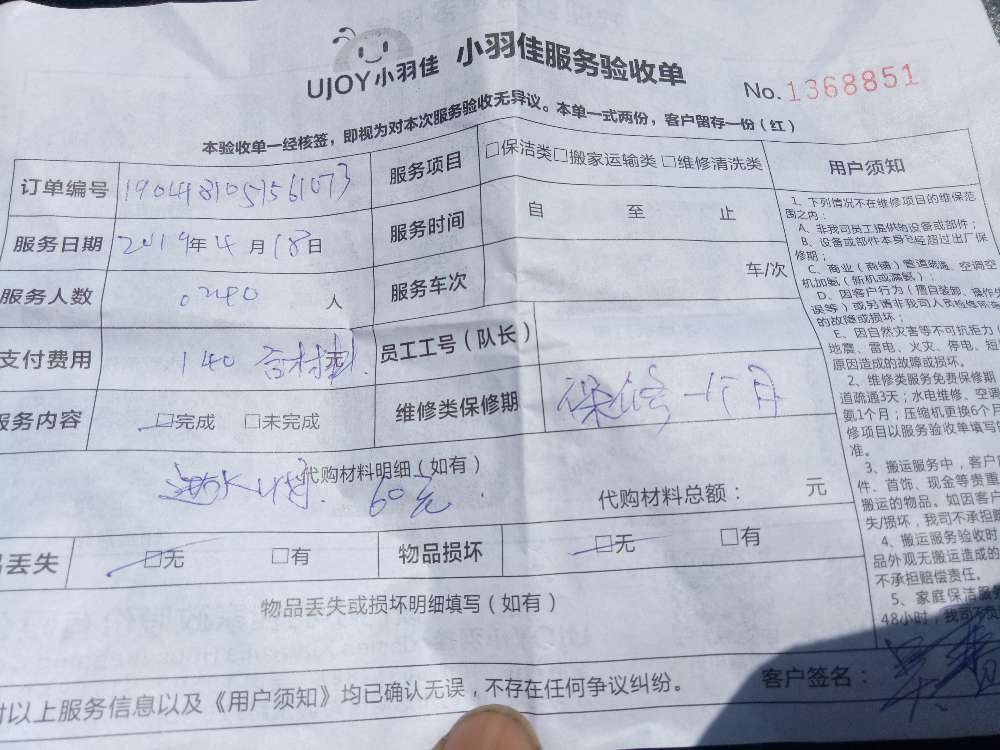 UJOY小羽佳 小羽佳服务验收单 No.1368851
本验收单一经核签，即视为对本次服务验收无异议。本单一式两份，客户留存一份（红）
订单编号 服务项目 □保洁类□搬家运输类□维修清洗类 用户须知
服务日期 2019年4月18日 服务时间 自 至 止
服务人数 0240 人 服务车次 车/次
支付费用 140 含材料 员工工号（队长）
服务内容 □完成 □未完成 维修类保修期 保修一个月
代购材料明细（如有）
60元 代购材料总额： 元
丢失 □无 □有 物品损坏 □无 □有
物品丢失或损坏明细填写（如有）
以上服务信息以及《用户须知》均已确认无误，不存在任何争议纠纷。 客户签名：
1、下列情况不在维修项目的维保范
围之内：
A、非我司员工提供的设备或部件；
B、设备或部件本身已经超过出厂保
修期；
C、商业（商铺）管道疏通、空调空
机加氨（新机或漏氨）；
D、因客户行为（擅自装卸、操作失
误等）或另请非我司人员检修所
的故障或损坏；
E、因自然灾害等不可抗拒力
地震、雷电、火灾、停电、短
原因造成的故障或损坏。
2、维修类服务免费保修期
道疏通3天；水电维修、空调
氨1个月；压缩机更换6个月
修项目以服务验收单填写的
准。
3、搬运服务中，客户
件、首饰、现金等贵重
搬运的物品。如因客户
失/损坏，我司不承担
4、搬运服务验收时
品外观无搬运造成的
不承担赔偿责任。
5、家庭保洁服务
48小时，我司不